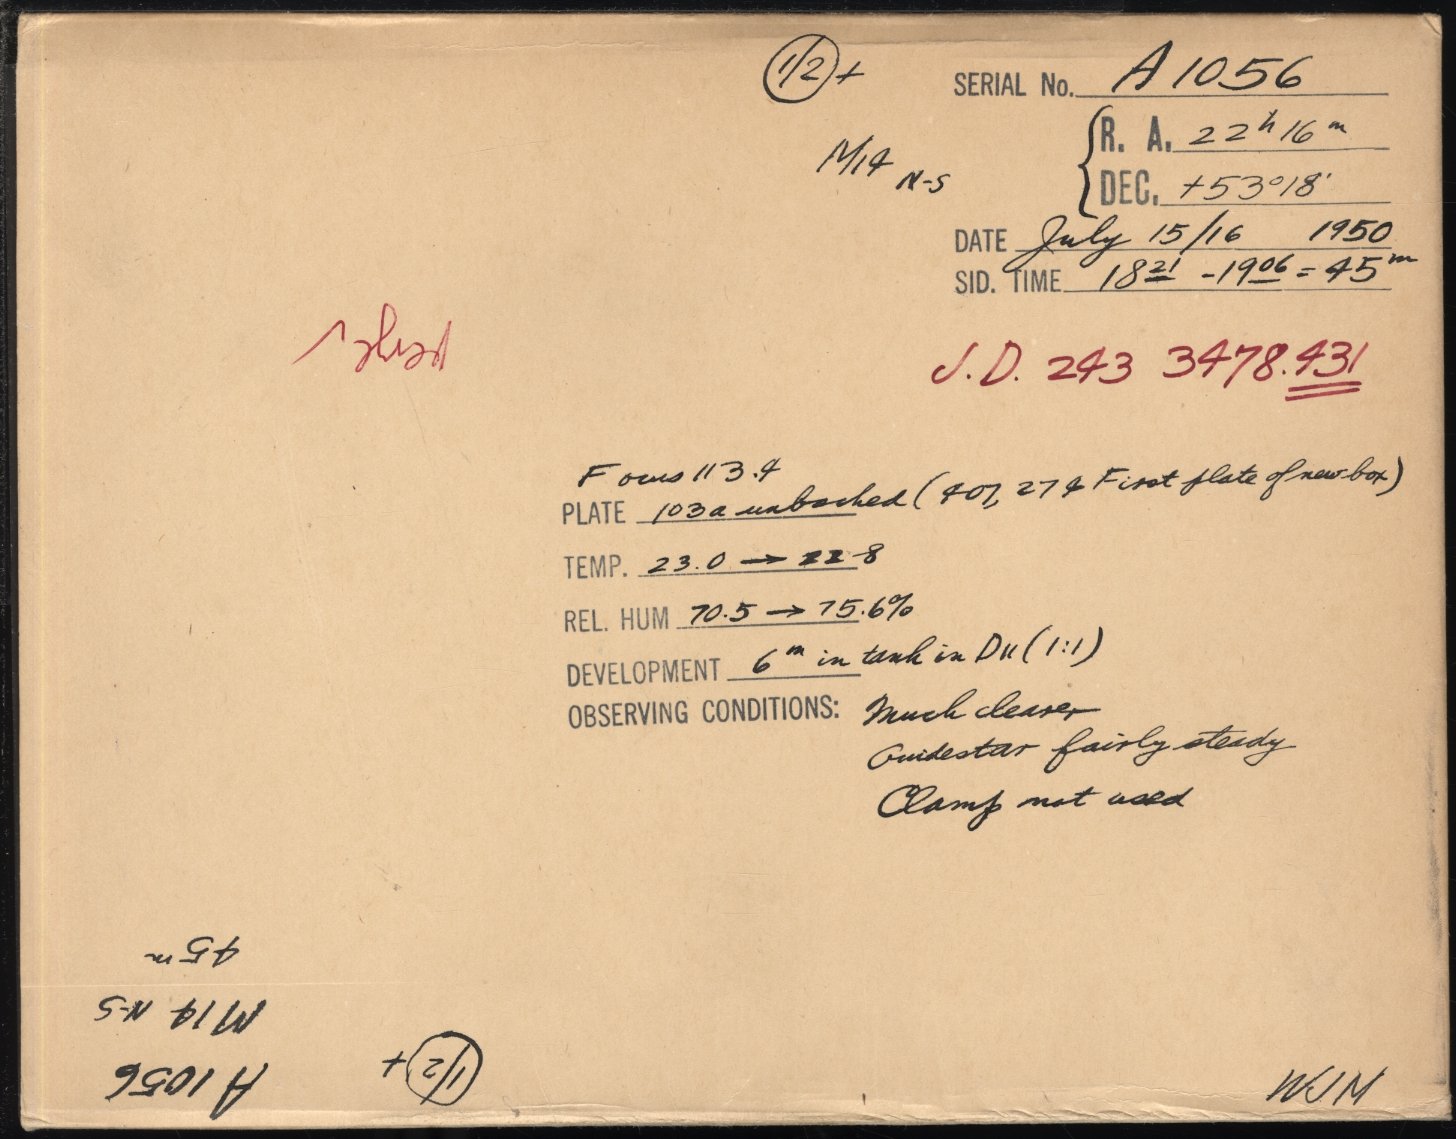 1/2 +
SERIAL No. A 1056
R. A. 22h 16m
M14 N-S
DEC. +53°18'
DATE July 15/16 1950
SID. TIME 18 21 - 19 06 = 45m
J.D. 243 3478.431
Focus 113.4
PLATE 103a unbacked (407, 274 First plate of new box)
TEMP. 23.0 → 22.8
REL. HUM 70.5 → 75.6%
DEVELOPMENT 6m in tank in D11 (1:1)
OBSERVING CONDITIONS: Much clearer
Guidestar fairly steady
Clamp not used
WJM
1/2 +
A 1056
M14 N-S
45m